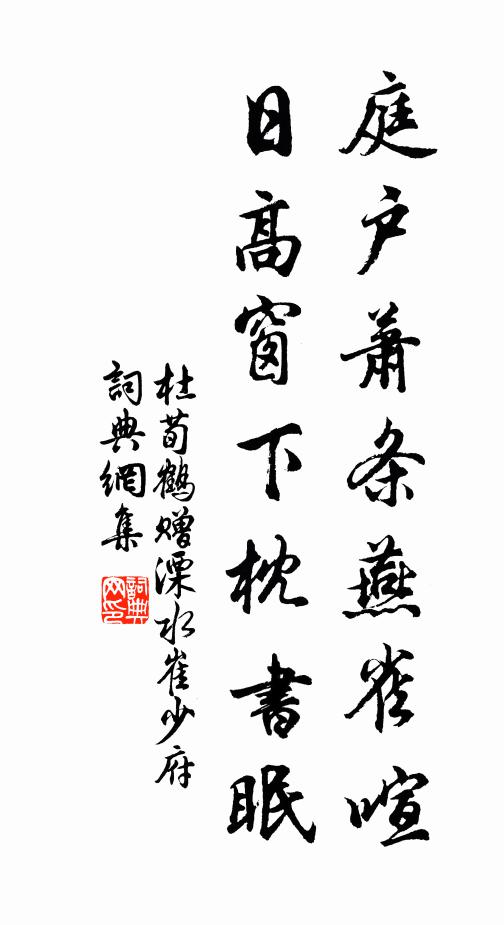 庭户萧条燕雀喧
日高窗下枕書眠
杜荀鶴赠溧水崔少府
詞典網集
詞典网印